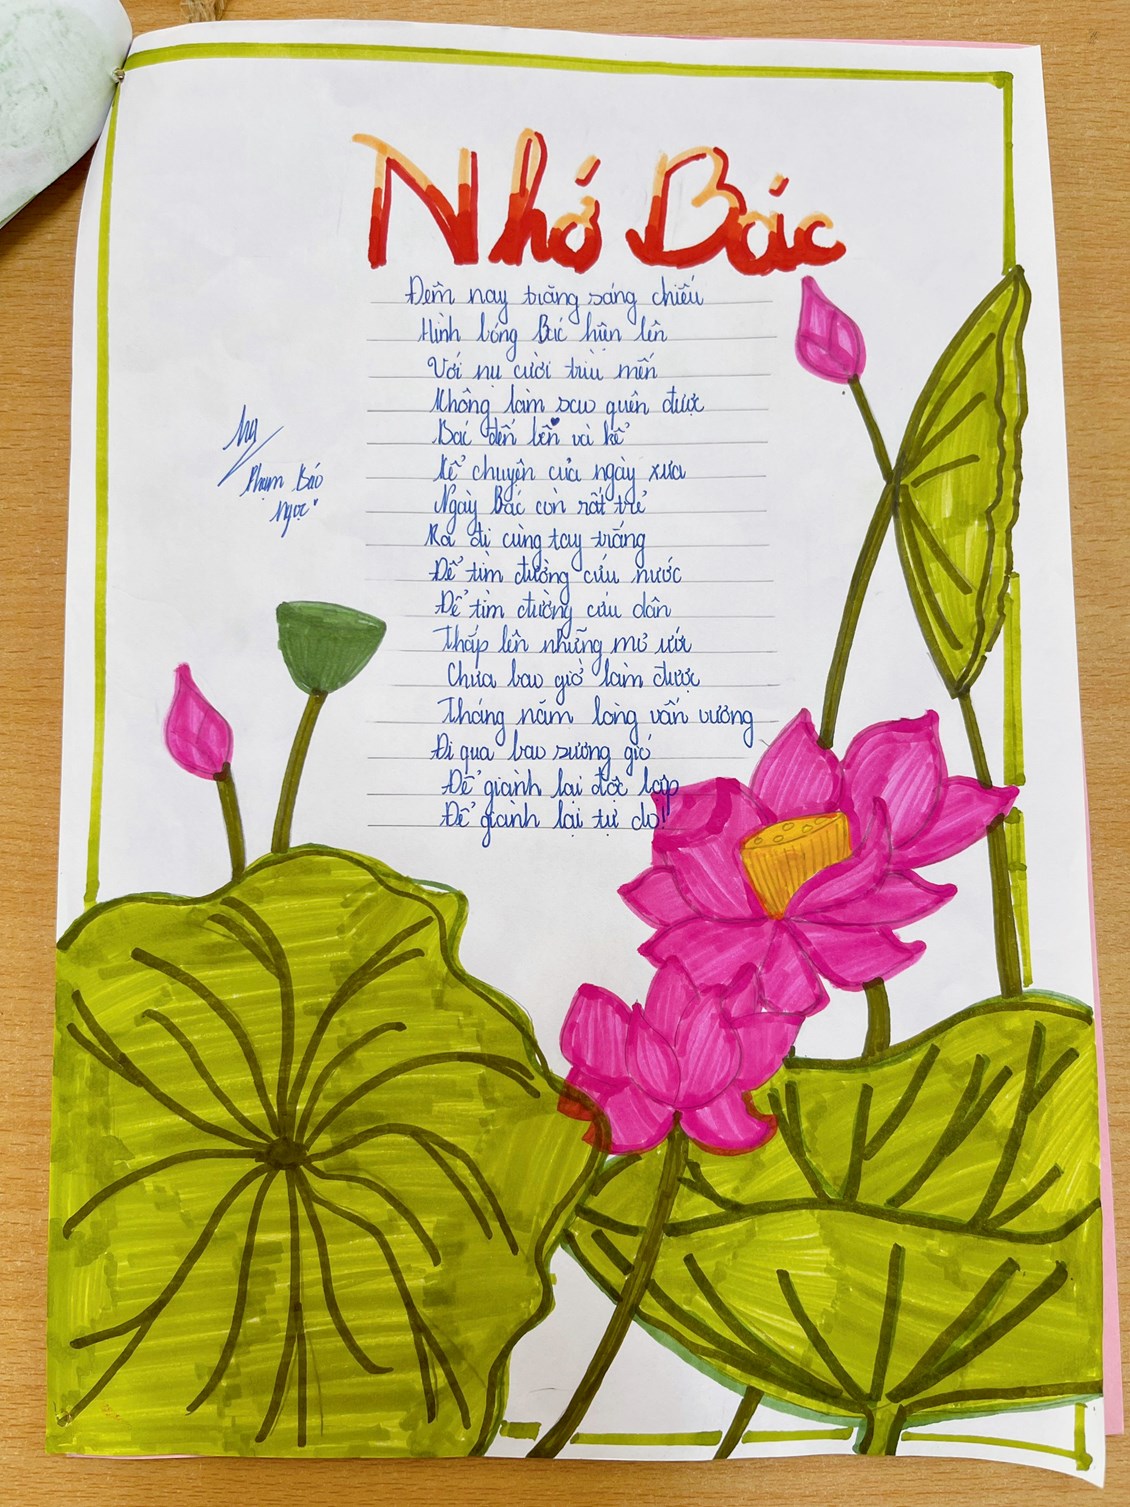 Nhớ Bác
Đêm nay trăng sáng chiếu
Hình bóng Bác hiện lên
Với nụ cười trìu mến
Không làm sao quên được
Bác đến bên và kể
Kể chuyện của ngày xưa
Ngày Bác còn rất trẻ
Ra đi cùng tay trắng
Để tìm đường cứu nước
Để tìm đường cứu dân
Thắp lên những mơ ước
Chưa bao giờ làm được
Tháng năm lòng vấn vương
Đi qua bao sương gió
Để giành lại độc lập
Để giành lại tự do!
Phạm Bảo
Ngọc